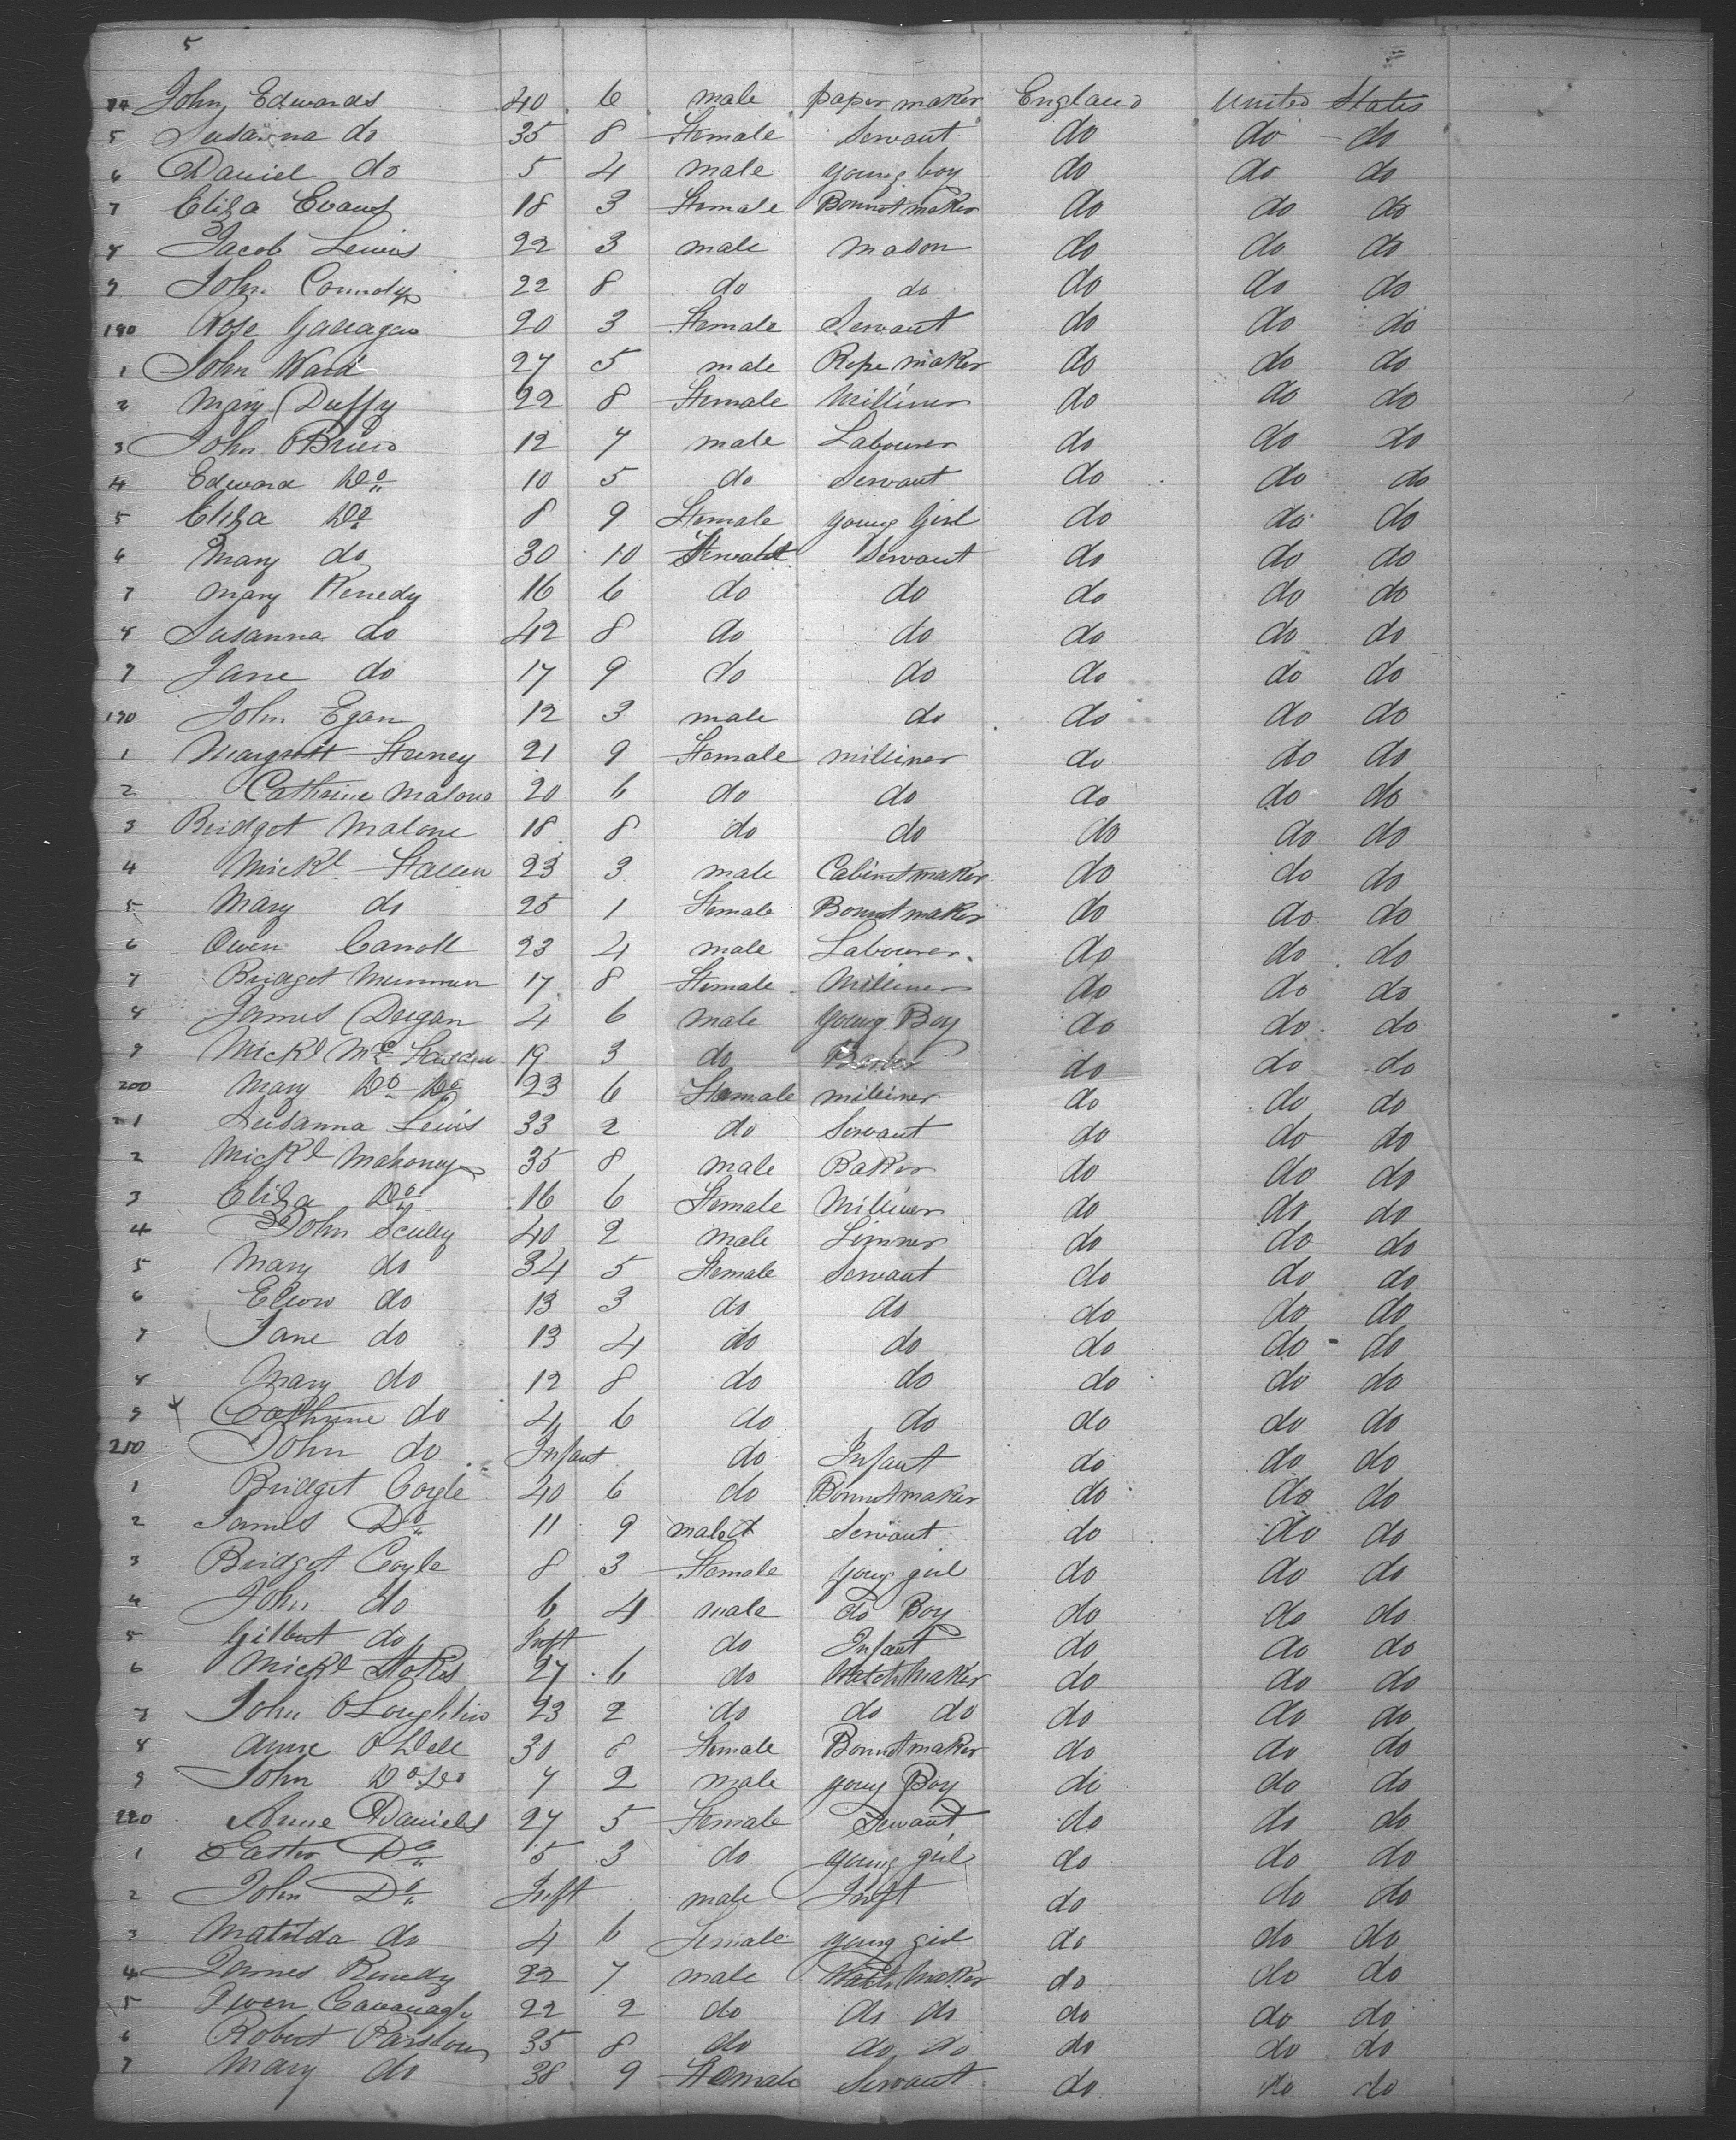 5
74 John Edwards 40 6 male paper maker England United States
5 Susanna do 35 8 Female Servant do do do
6 Daniel do 5 4 male young boy do do do
7 Eliza Evans 18 3 Female Bonnet maker do do do
8 Jacob Lewis 22 3 male mason do do do
9 John Connolys 22 8 do do do do do
180 Rose Gallagan 20 3 Female Servant do do do
1 John Ward 27 5 male Rope maker do do do
2 Mary Duffy 22 8 Female Milliner do do do
3 John OBrien 12 7 male Labourer do do do
4 Edward Do 10 5 do Servant do do do
5 Eliza Do 8 9 Female young Girl do do do
6 Mary do 30 10 Servant do do do
7 Mary Kenedy 16 6 do do do do do
8 Susanna do 42 8 do do do do do
9 Jane do 17 9 do do do do do
190 John Egan 12 3 male do do do do
1 Margrett 21 9 Female milliner do do do
2 Cathrine Malone 20 6 do do do do do
3 Bridget Malone 18 8 do do do do do
4 Mickl 23 3 male Cabinetmaker do do do
5 Mary do 25 1 Female Bonnet maker do do do
6 Owen Carroll 23 4 male Labourer do do do
7 Bridget 17 8 Female Milliner do do do
8 James Deegan 4 6 male young Boy do do do
9 Mickl Mc 19 3 do do do do
200 Mary Do Do 23 6 Female milliner do do do
1 Susanna Lewis 33 2 do Servant do do do
2 Mickl Mahoney 35 8 male Baker do do do
3 Eliza Do 16 6 Female Milliner do do do
4 John Scully 40 2 male Limner do do do
5 Mary do 34 5 Female Servant do do do
6 Ellen do 13 3 do do do do do
7 Jane do 13 4 do do do do do
8 Mary do 12 8 do do do do do
9 Cathrine do 4 6 do do do do do
210 John do Infant do Infant do do do
1 Bridget Coyle 40 6 do Bonnetmaker do do do
2 James Do 11 9 male Servant do do do
3 Bridget Coyle 8 3 Female young girl do do do
4 John do 6 4 male do Boy do do do
5 Gilbert do Inft do Infant do do do
6 Mickl Stokes 27 6 do Watch Maker do do do
7 John OLoughlin 23 2 do do do do do do
8 Anne ODell 30 8 Female Bonnet maker do do do
9 John Do Do 7 2 male young Boy do do do
220 Anne Daniels 27 5 Female Servant do do do
1 Easter Do 5 3 do young girl do do do
2 John Do Inft male Inft do do do
3 Matilda do 4 6 Female young girl do do do
4 James Kenedy 22 7 male Watch Maker do do do
5 Owen Cavanagh 22 2 do do do do do do
6 Robert 35 8 do do do do do do
7 Mary do 38 9 Female Servant do do do